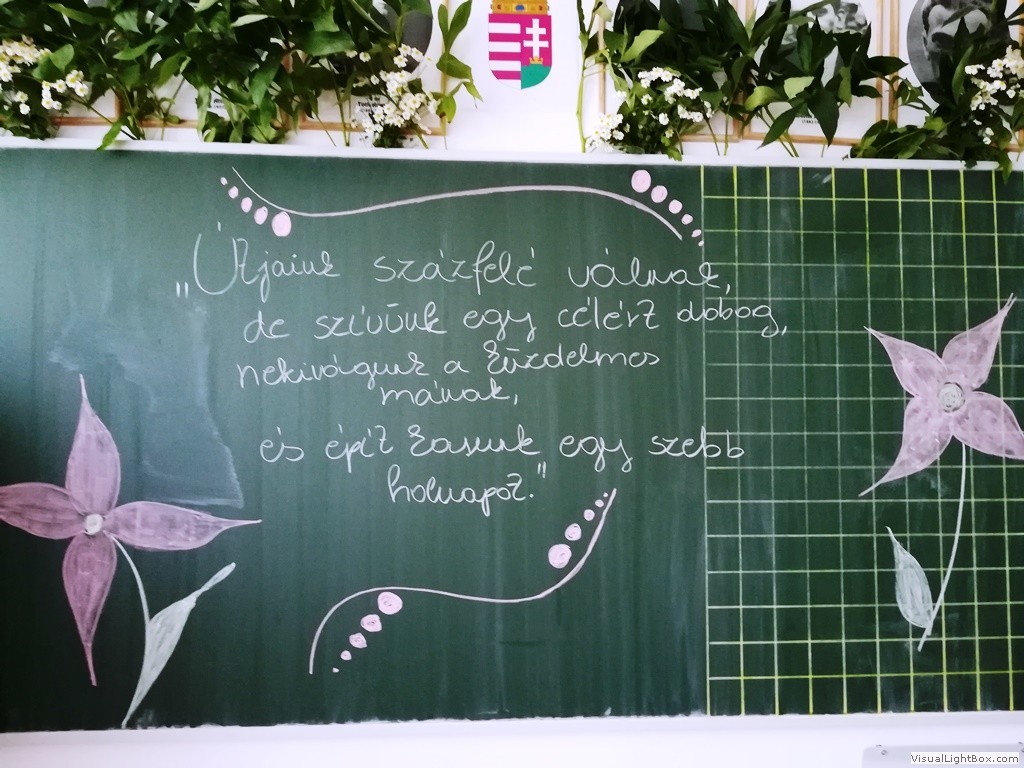 „Útjaink százfelé válnak,
de szívünk egy célért dobog,
nekivágunk a küzdelmes
mának,
és építkasunk egy szebb
holnapot."
VisualLightBox.com